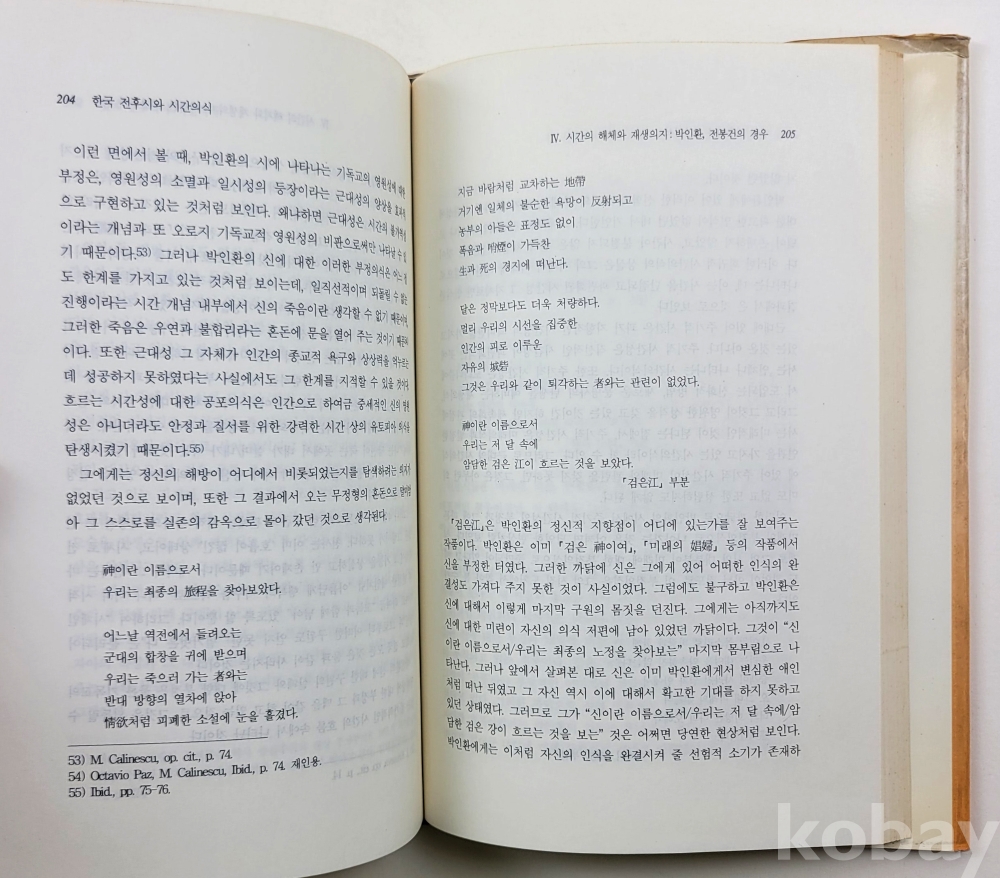 204 한국 전후시와 시간의식
이런 면에서 볼 때, 박인환의 시에 나타나는 기독교의 영원성에 대한
부정은, 영원성의 소멸과 일시성의 등장이라는 근대성의 양상을
으로 구현하고 있는 것처럼 보인다. 왜냐하면 근대성은 시간의
이라는 개념과 또 오로지 기독교적 영원성의 비판으로써만 나타날 수 있
기 때문이다.53) 그러나 박인환의 신에 대한 이러한 부정의식은 어느 정
도 한계를 가지고 있는 것처럼 보이는데, 일직선적이며 되돌릴 수 없는
진행이라는 시간 개념 내부에서 신의 죽음이란 생각할 수 없기 때문이며,
그러한 죽음은 우연과 불합리라는 혼돈에 문을 열어 주는 것이기 때문
이다. 또한 근대성 그 자체가 인간의 종교적 욕구와 상상력을 억누르는
데 성공하지 못하였다는 사실에서도 그 한계를 지적할 수 있을 것이다.
흐르는 시간성에 대한 공포의식은 인간으로 하여금 중세적인 신의 영원
성은 아니더라도 안정과 질서를 위한 강력한 시간 상의 유토피아 의식을
탄생시켰기 때문이다.55)
그에게는 정신의 해방이 어디에서 비롯되었는지를 탐색하려는 의지가
없었던 것으로 보이며, 또한 그 결과에서 오는 무정형의 혼돈으로
아 그 스스로를 실존의 감옥으로 몰아 갔던 것으로 생각된다.
神이란 이름으로서
우리는 최종의 旅程을 찾아보았다.
어느날 역전에서 들려오는
군대의 합창을 귀에 받으며
우리는 죽으러 가는 者와는
반대 방향의 열차에 앉아
情欲처럼 피폐한 소설에 눈을 흘겼다.
53) M. Calinescu, op. cit., p. 74.
54) Octavio Paz, M. Calinescu, Ibid., p. 74. 재인용.
55) Ibid., pp. 75-76.
Ⅳ. 시간의 해체와 재생의지: 박인환, 전봉건의 경우 205
지금 바람처럼 교차하는 地帶
거기엔 일체의 불순한 욕망이 反射되고
농부의 아들은 표정도 없이
폭음과 硝煙이 가득찬
生과 死의 경지에 떠난다.
달은 정막보다도 더욱 처량하다.
멀리 우리의 시선을 집중한
인간의 피로 이루운
자유의 城砦
그것은 우리와 같이 퇴각하는 者와는 관련이 없었다.
神이란 이름으로서
우리는 저 달 속에
암담한 검은 江이 흐르는 것을 보았다.
「검은江」 부분
「검은江」은 박인환의 정신적 지향점이 어디에 있는가를 잘 보여주는
작품이다. 박인환은 이미 「검은 神이여」, 「미래의 娼婦」 등의 작품에서
신을 부정한 터였다. 그러한 까닭에 신은 그에게 있어 어떠한 인식의 완
결성도 가져다 주지 못한 것이 사실이었다. 그럼에도 불구하고 박인환은
신에 대해서 이렇게 마지막 구원의 몸짓을 던진다. 그에게는 아직까지도
신에 대한 미련이 자신의 의식 저편에 남아 있었던 까닭이다. 그것이 “신
이란 이름으로서/우리는 최종의 노정을 찾아보는” 마지막 몸부림으로 나
타난다. 그러나 앞에서 살펴본 대로 신은 이미 박인환에게서 변심한 애인
처럼 떠난 뒤였고 그 자신 역시 이에 대해서 확고한 기대를 하지 못하고
있던 상태였다. 그러므로 그가 “신이란 이름으로서/우리는 저 달 속에/암
담한 검은 강이 흐르는 것을 보는” 것은 어쩌면 당연한 현상처럼 보인다.
박인환에게는 이처럼 자신의 인식을 완결시켜 줄 선험적 소기가 존재하
kobay